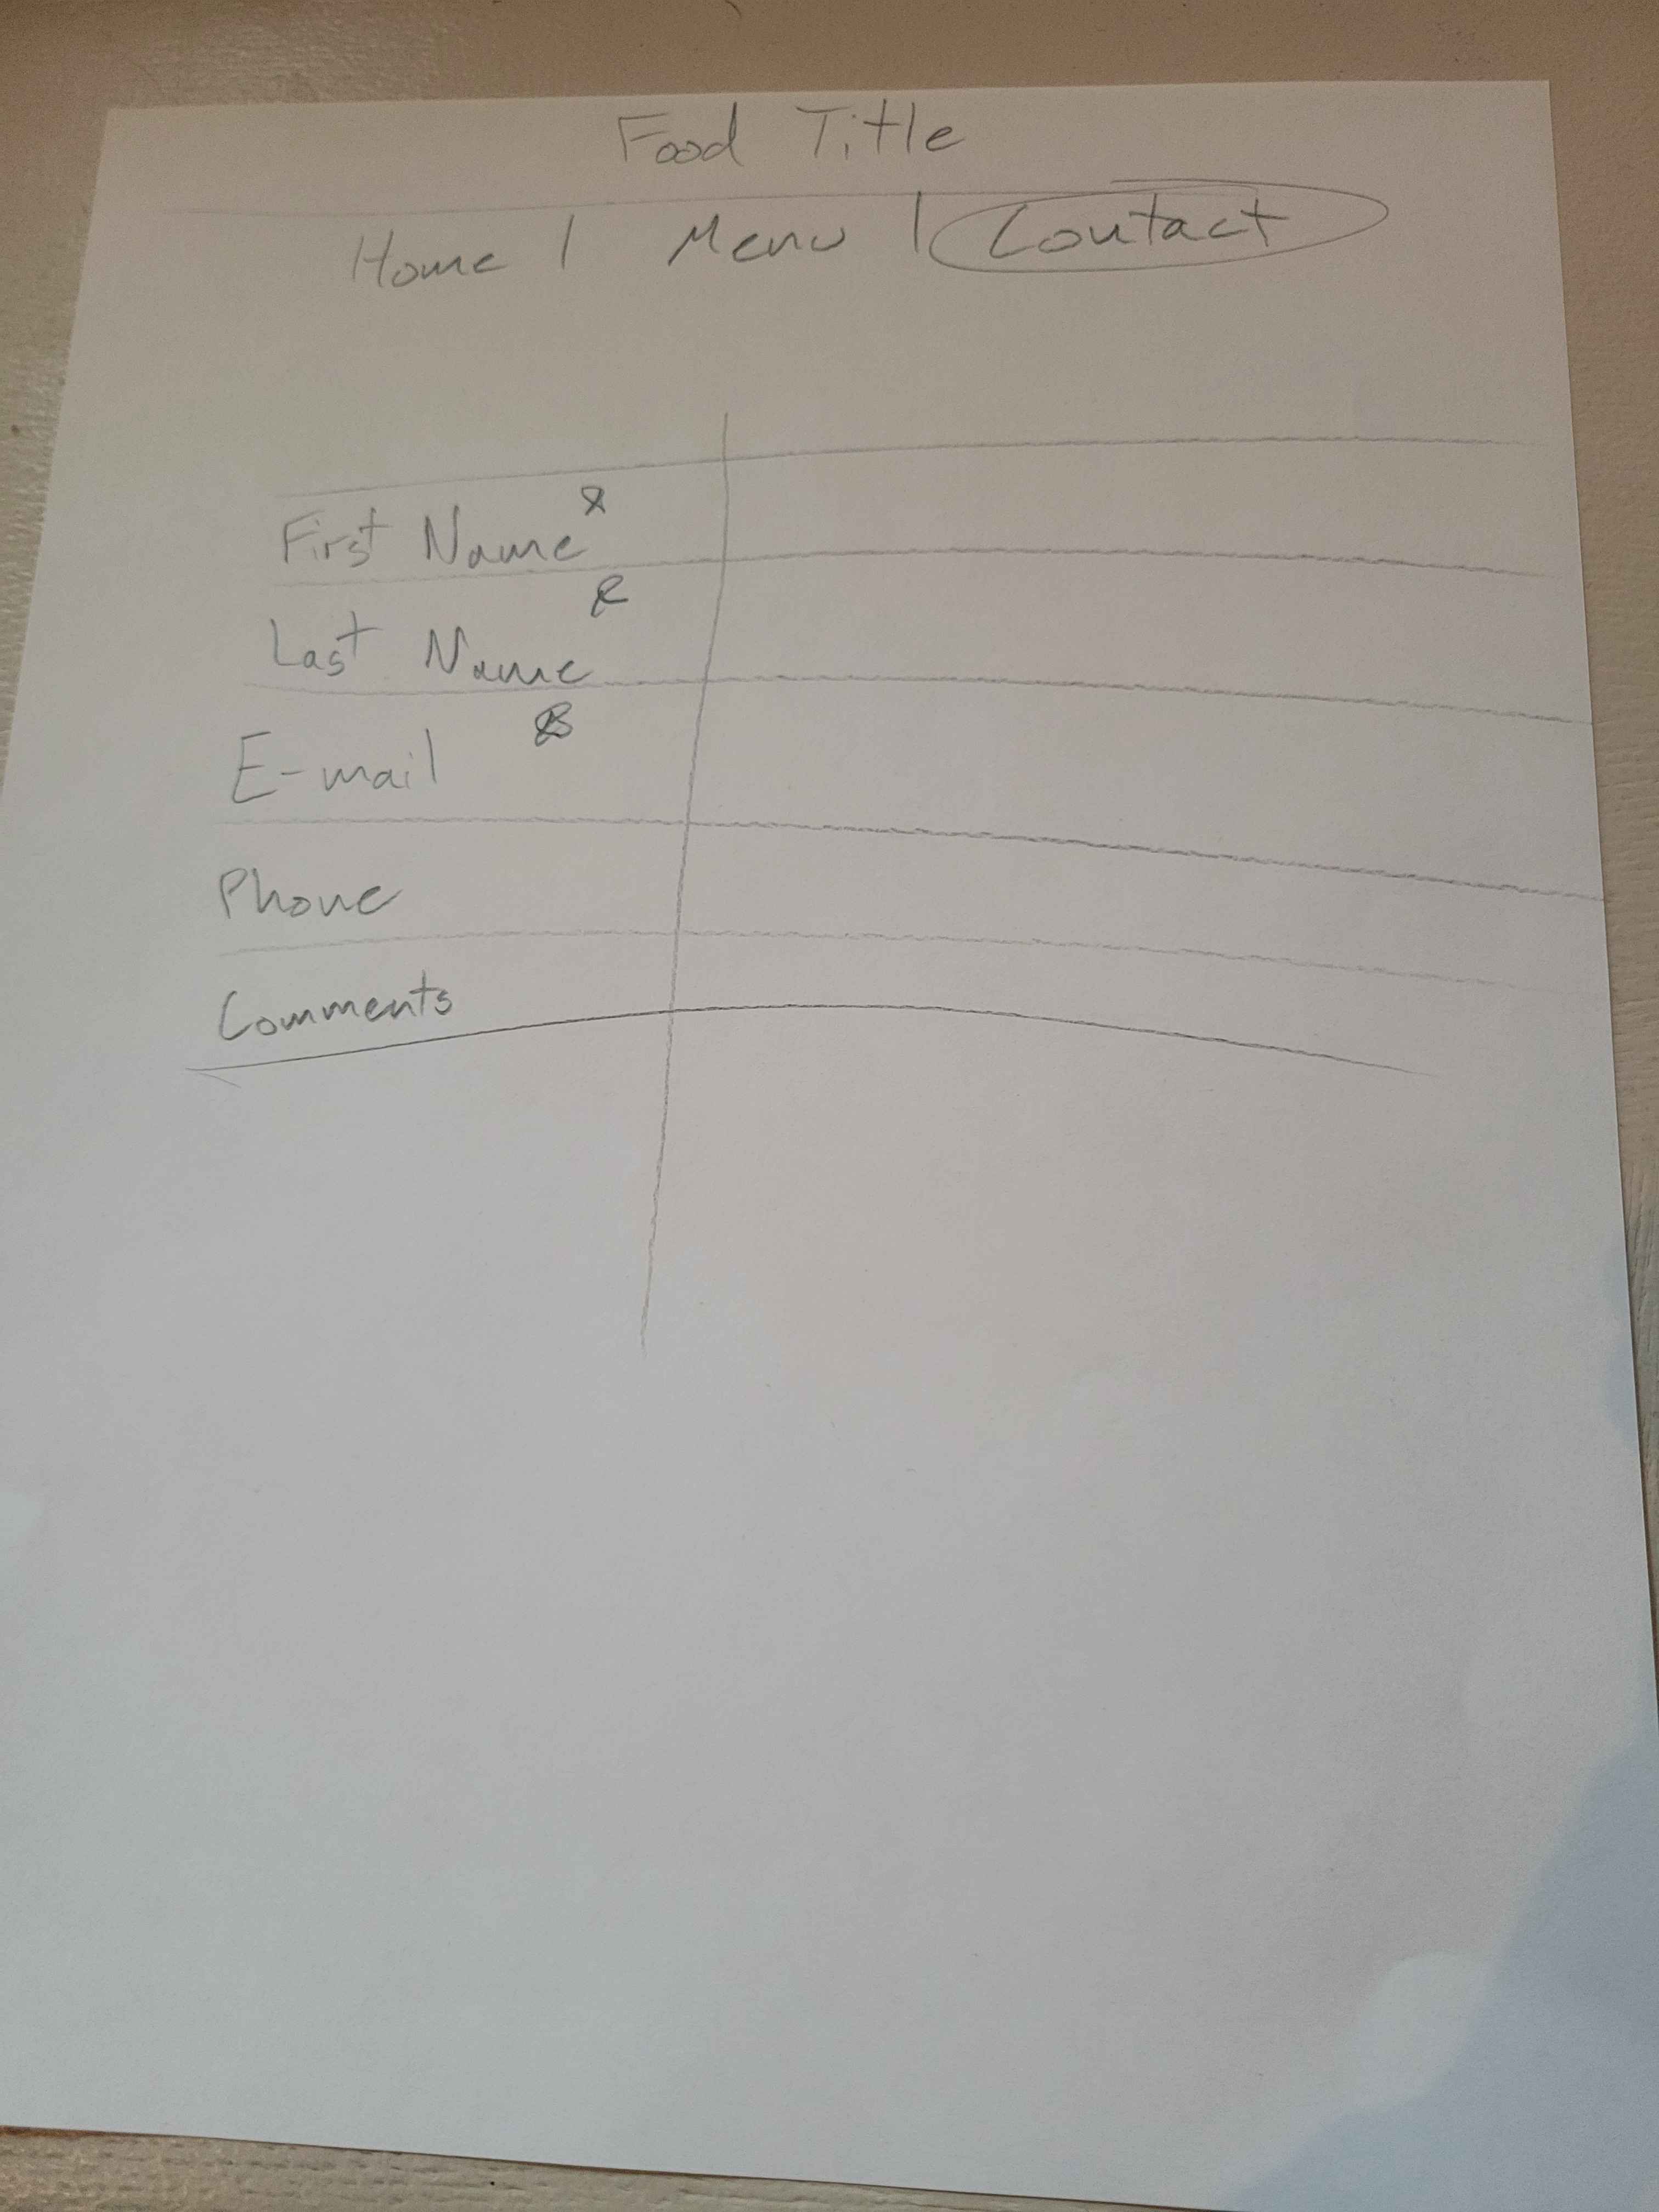 Food Title
Home | Menu | Contact
First Name*
Last Name*
E-mail *
Phone
Comments